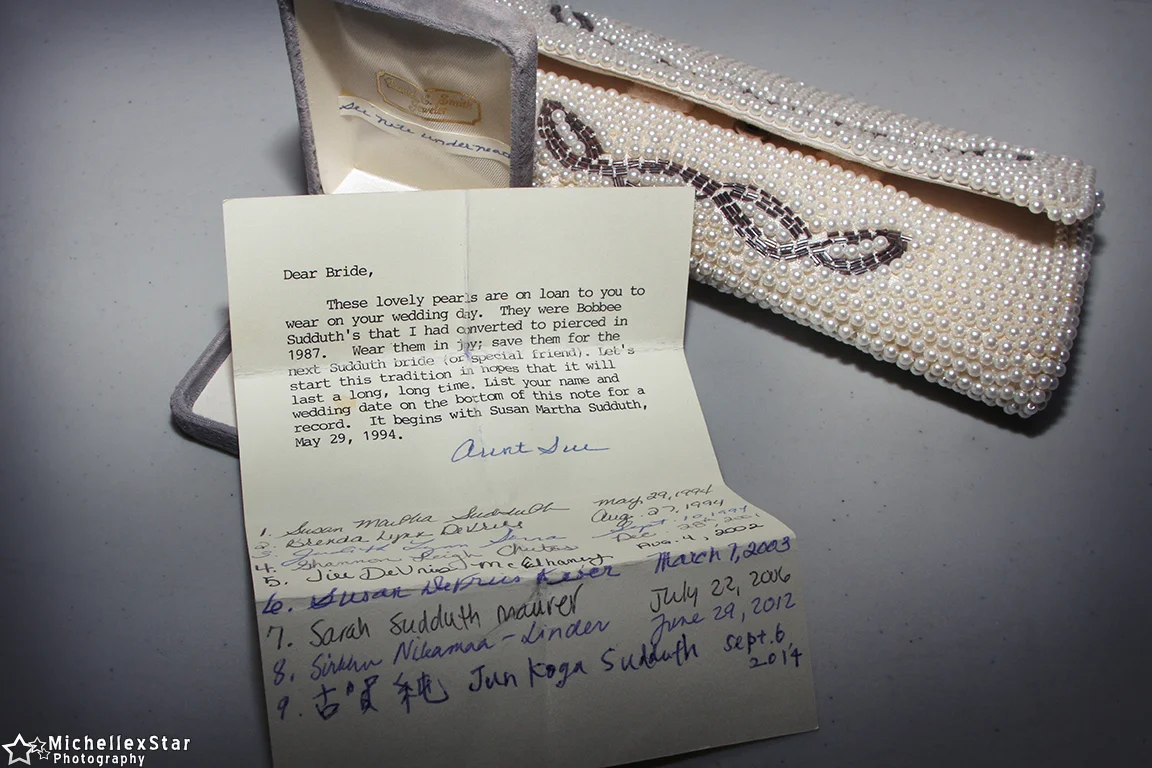 Smith
Jeweler
See note underneath
Dear Bride,
These lovely pearls are on loan to you to
wear on your wedding day. They were Bobbee
Sudduth's that I had converted to pierced in
1987. Wear them in joy; save them for the
next Sudduth bride (or special friend). Let's
start this tradition in hopes that it will
last a long, long time. List your name and
wedding date on the bottom of this note for a
record. It begins with Susan Martha Sudduth,
May 29, 1994.
Aunt Sue
1. Susan Martha Sudduth May 29, 1994
2. Brenda Lynn DeVries Aug. 27, 1994
3. Judith Lynn Serra Sept. 10, 1994
4. Shannon Leigh Chutas Dec 28th, 2001
5. Jill DeVries-McElhaney Aug. 4, 2002
6. Susan DeVries Keser March 7, 2003
7. Sarah Sudduth Maurer July 22, 2006
8. Nikamaa-Linder June 29, 2012
9. 古賀 純 Jun Koga Sudduth Sept. 6,
2014
MichellexStar
Photography